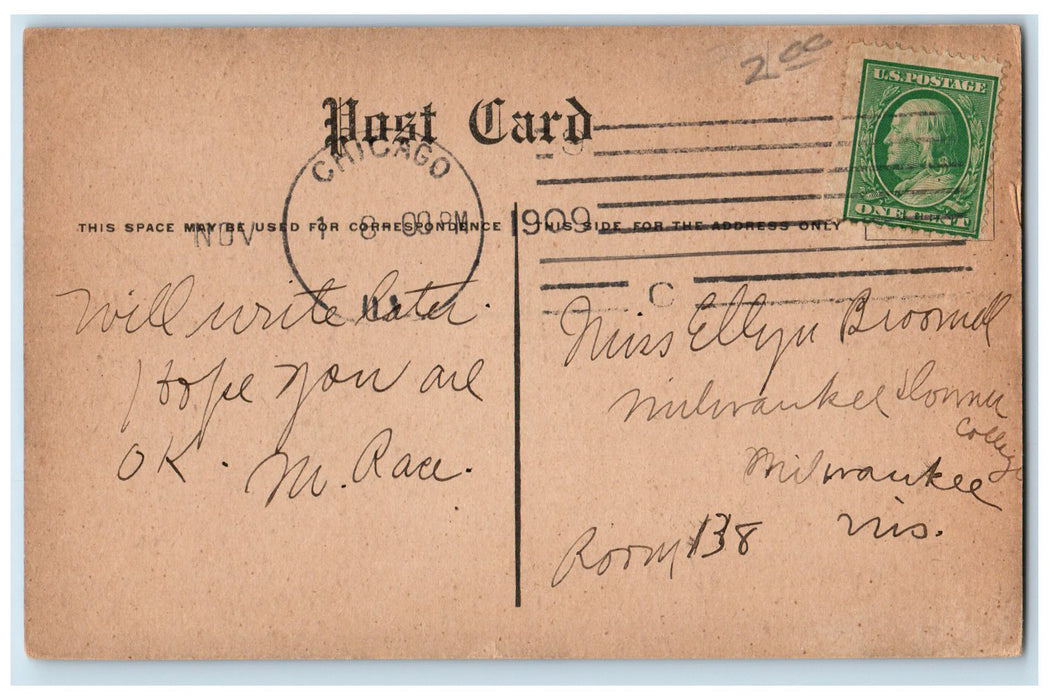 2 00
U.S. POSTAGE
ONE CENT
Post Card
CHICAGO
NOV 1 8 00 PM 1909
ILL
C
THIS SPACE MAY BE USED FOR CORRESPONDENCE
THIS SIDE FOR THE ADDRESS ONLY
Will write later.
Hope you are
OK. M. Race.
Miss Ellyn Broomell
Milwaukee Downer
College
Milwaukee
Wis.
Room 138